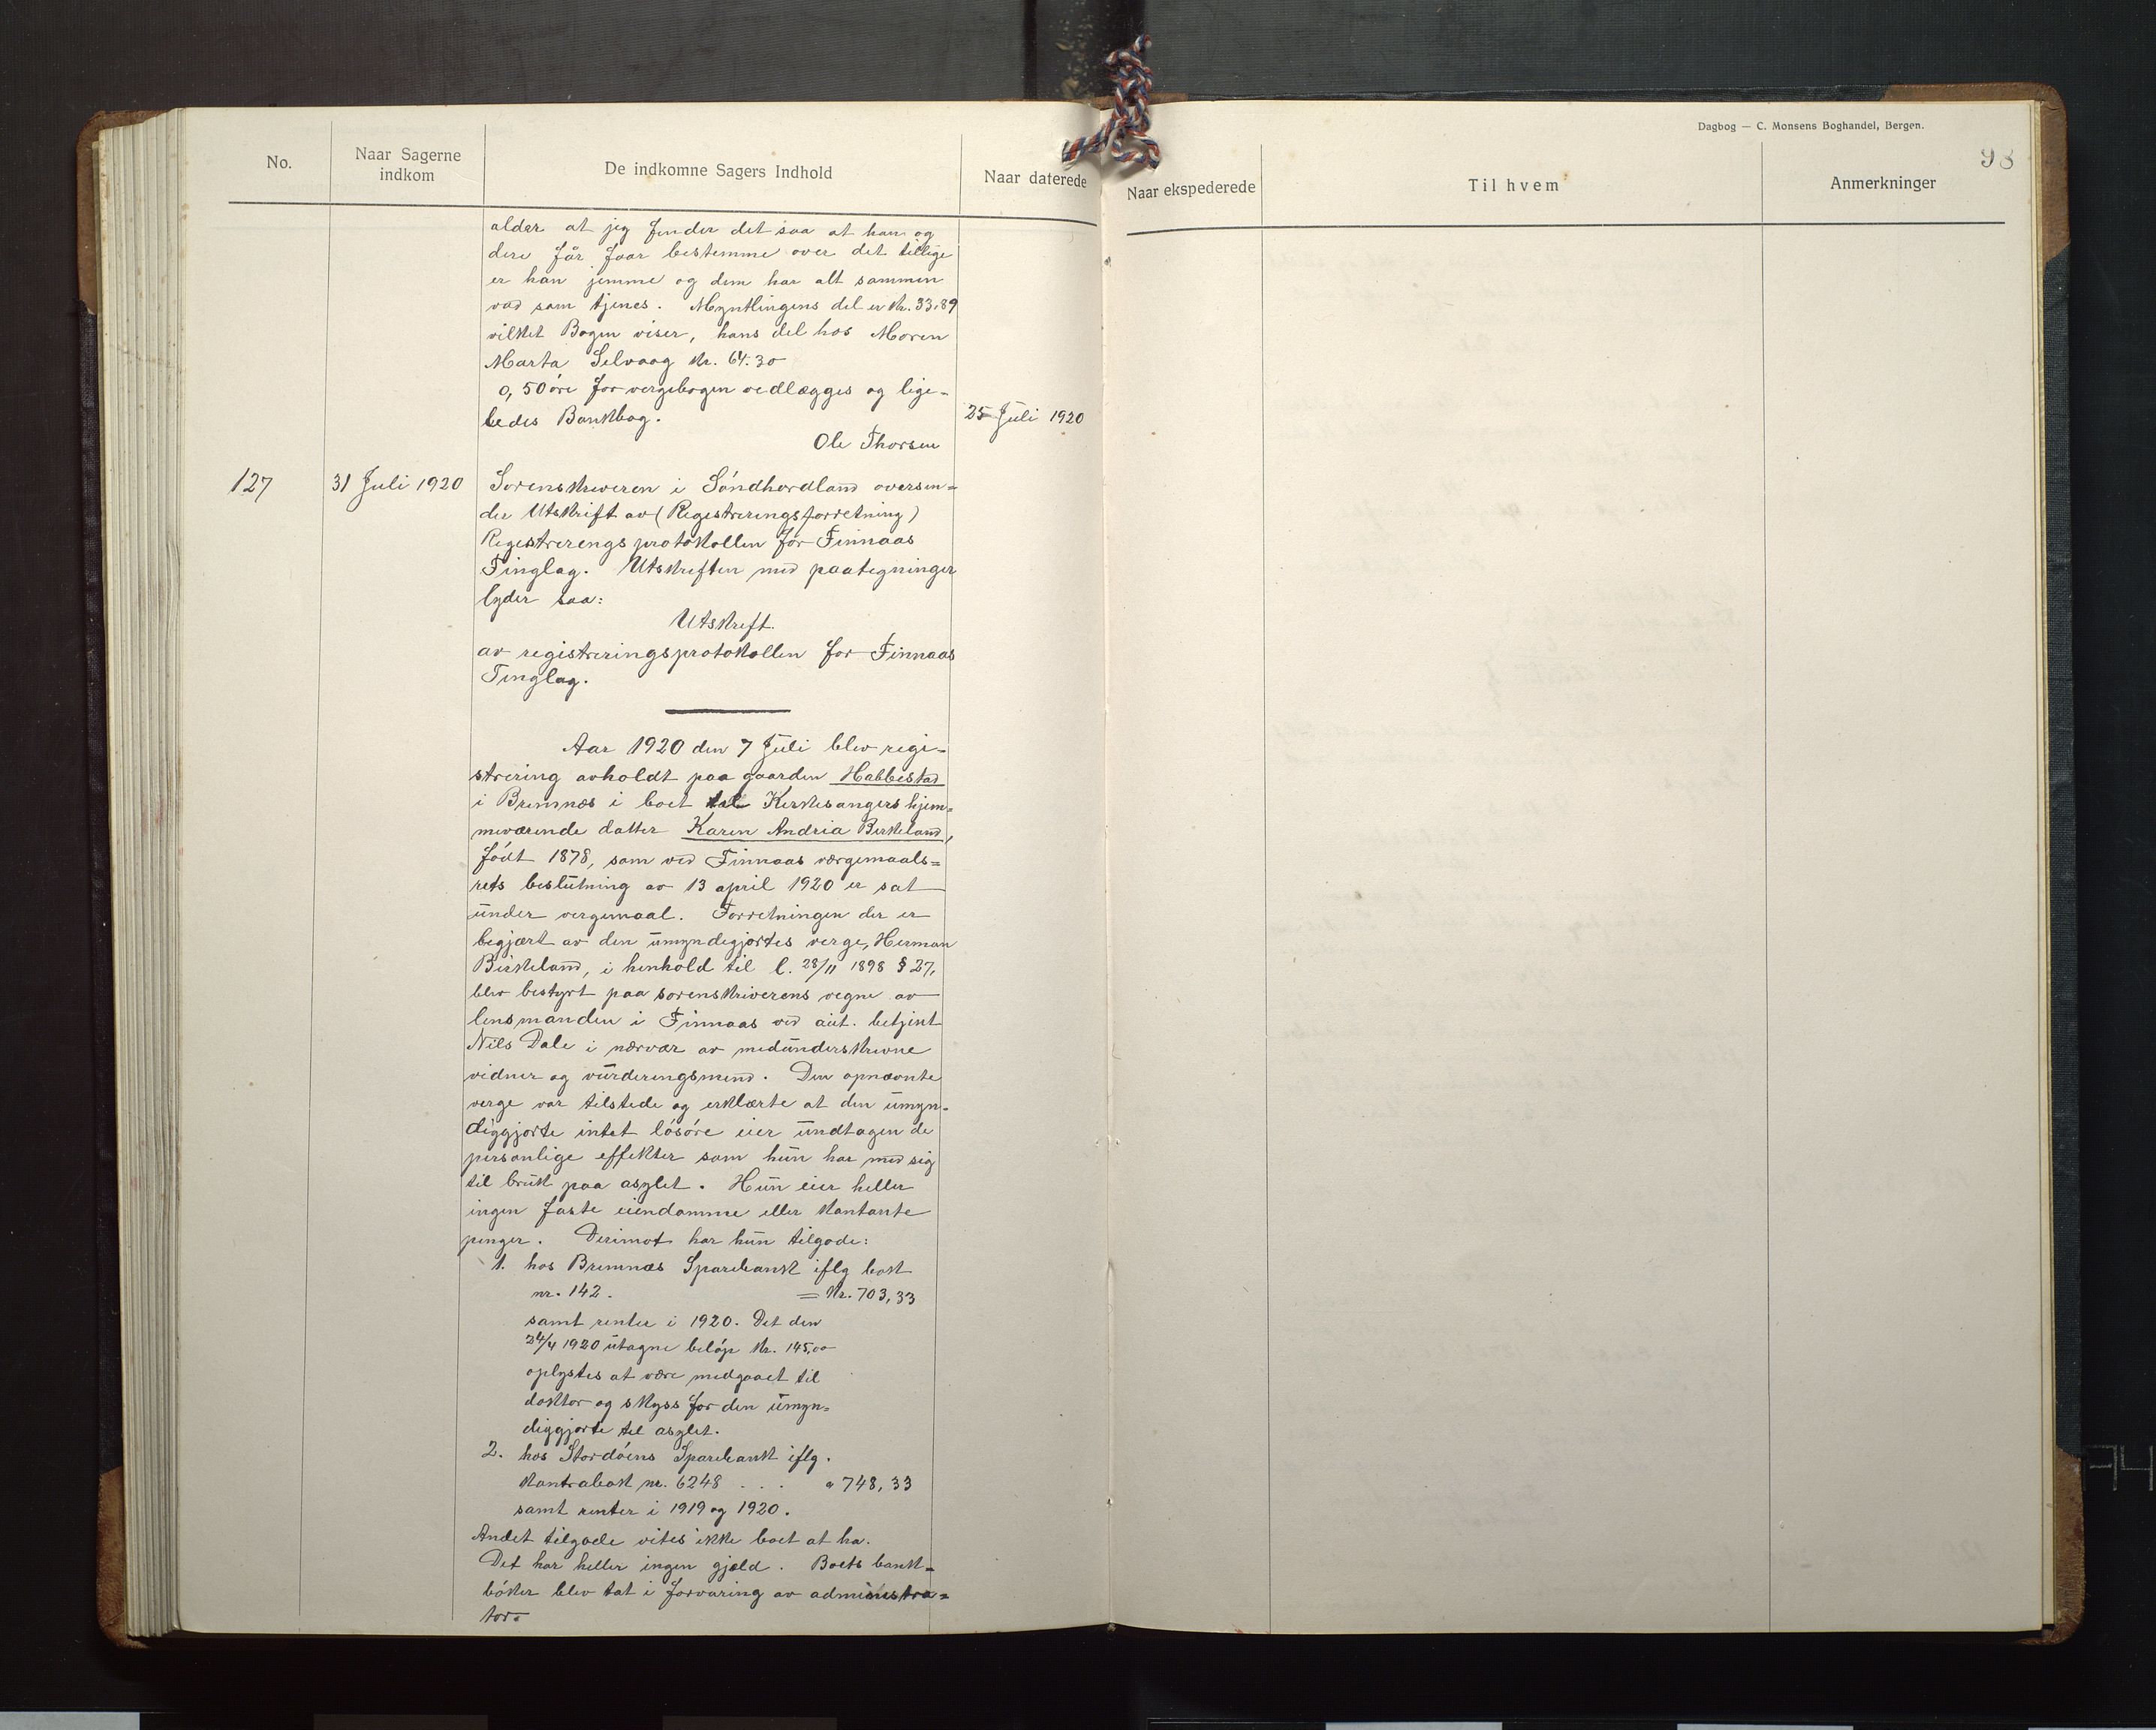 Dagbog — C. Monsens Boghandel, Bergen.
98
No.
Naar Sagerne indkom
De indkomne Sagers Indhold
Naar daterede
Naar ekspederede
Til hvem
Anmerkninger
alder at jeg finder det saa at han og
dere får faar bestemme over det tillige
er han jemme og dem har alt sammen
vad som tjenes. Myntlingens del er kr. 33.89
vilket Bogen viser, hans del hos Moren
Marta Selvaag kr. 64.30
0,50 øre for vergebogen vedlægges og lige-
ledes Bankbog.
25 Juli 1920
Ole Thorsen
127
31 Juli 1920
Sorenskriveren i Søndhordland oversen=
der Utskrift av (Registreringsforretning)
Registreringsprotokollen for Finnaas
Tinglag. Utskriften med paategninger
lyder saa:
Utskrift.
av registreringsprotokollen for Finnaas
Tinglag.
Aar 1920 den 7 Juli blev regi-
strering avholdt paa gaarden Habbestad
i Bremnæs i boet til Kirkesangers hjem=
meværende datter Karen Andria Birkeland,
født 1878, som ved Finnaas værgemaals=
rets beslutning av 13 april 1920 er sat
under vergemaal. Forretningen der er
begjært av den umyndigjortes verge, Herman
Birkeland, i henhold til l. 28/11 1898 § 27,
blev bestyrt paa sorenskriverens vegne av
lensmanden i Finnaas ved aut. betjent
Nils Dale i nærvær av medunderskrevne
vidner og vurderingsmend. Den opnævnte
verge var tilstede og erklærte at den umyn-
diggjorte intet løsøre eier undtagen de
personlige effekter som hun har med sig
til bruk paa asylet. Hun eier heller
ingen faste eiendomme eller kontante
penger. Derimot har hun tilgode:
1. hos Bremnæs Sparebank iflg bok
nr. 142. = Kr. 703,33
samt renter i 1920. Det den
24/4 1920 utagne beløp kr. 145,00
oplystes at være medgaaet til
doktor og skyss for den umyn=
diggjorte til asylet.
2. hos Stordøens Sparebank iflg.
Kontrabok nr. 6248 . . . " 748,33
samt renter i 1919 og 1920.
Andet tilgode vites ikke boet at ha.
Det har heller ingen gjæld. Boets bank=
bøker blev tat i forvaring av administra=
tor.